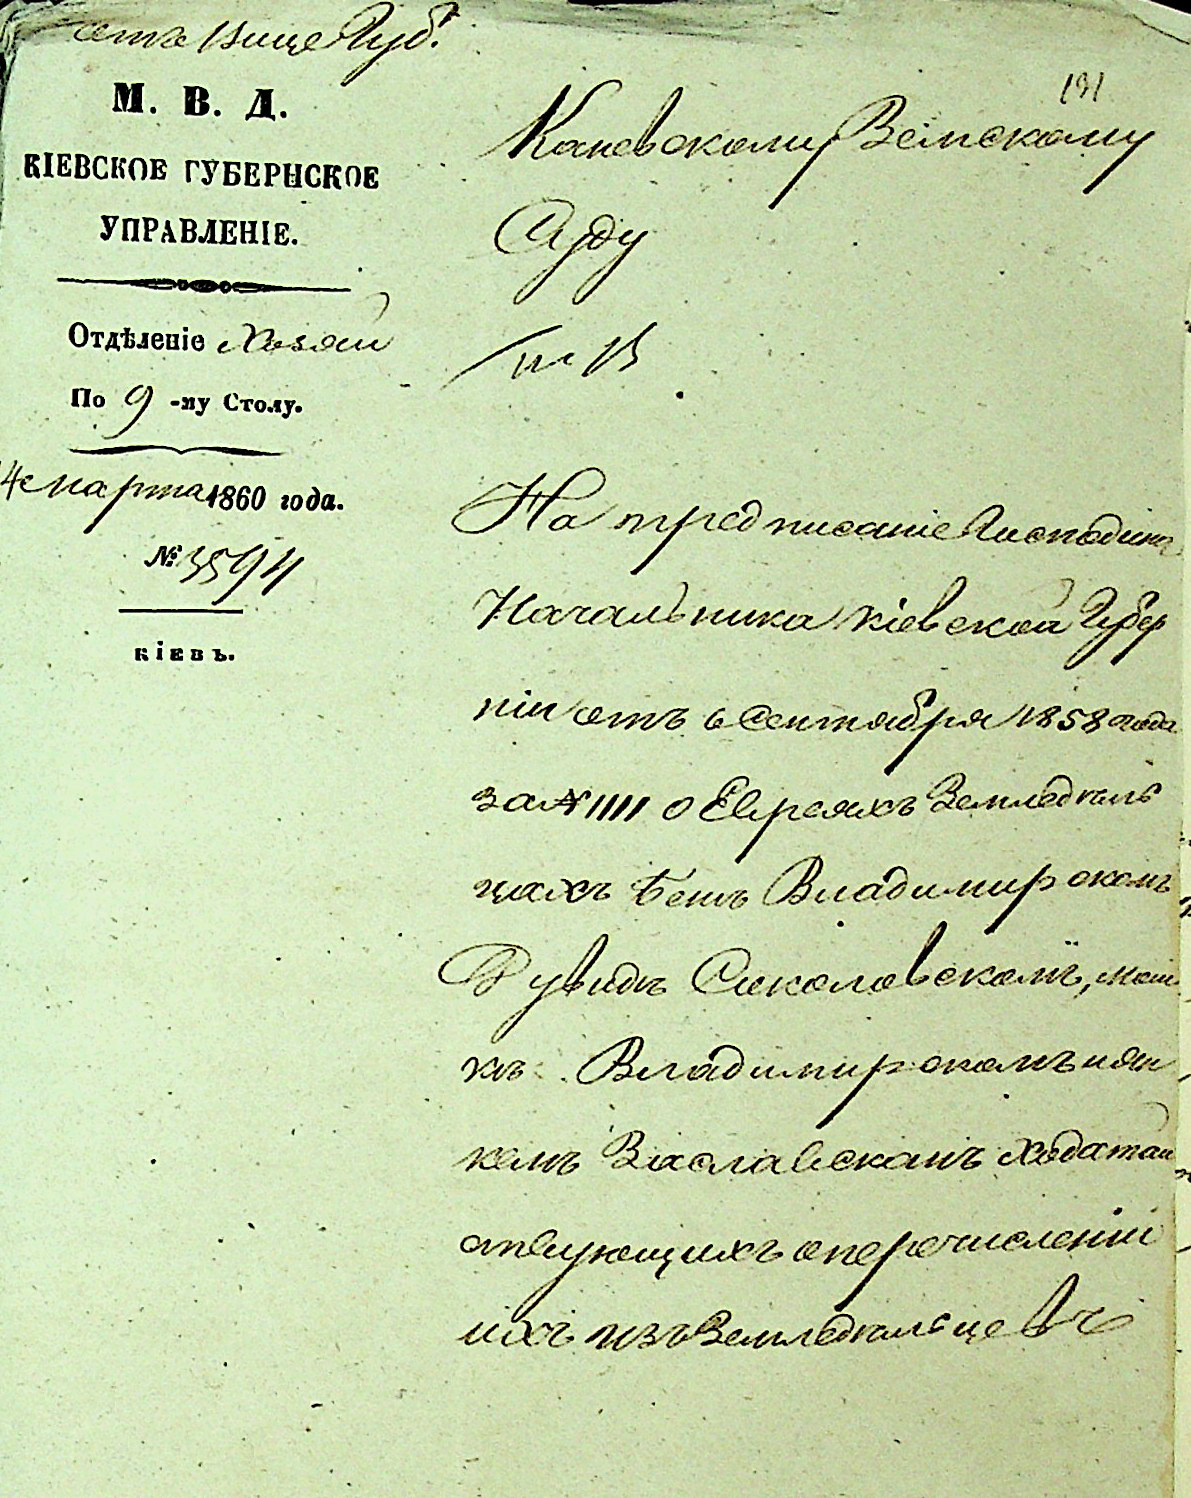 отъ Вице Губ.
М. В. Д.
КІЕВСКОЕ ГУБЕРНСКОЕ
УПРАВЛЕНІЕ.
Отдѣленіе Хозяй
По 9 -му Столу.
4 марта 1860 года.
№ 3594
КІЕВЪ.
131
Каневскому Земскому
Суду
На предписаніе Господина
Начальника Кіевской Губер
ніи отъ 6 Сентября 1858 года
за № 1111 о Евреяхъ Земледѣль
цахъ Владимирскомъ
Рувидѣ Соколовскомъ, Мош
кѣ Владимирскомъ и Ян
келѣ Заславскомъ ходатай
ствующихъ о перечисленіи
ихъ изъ Земледѣльцевъ